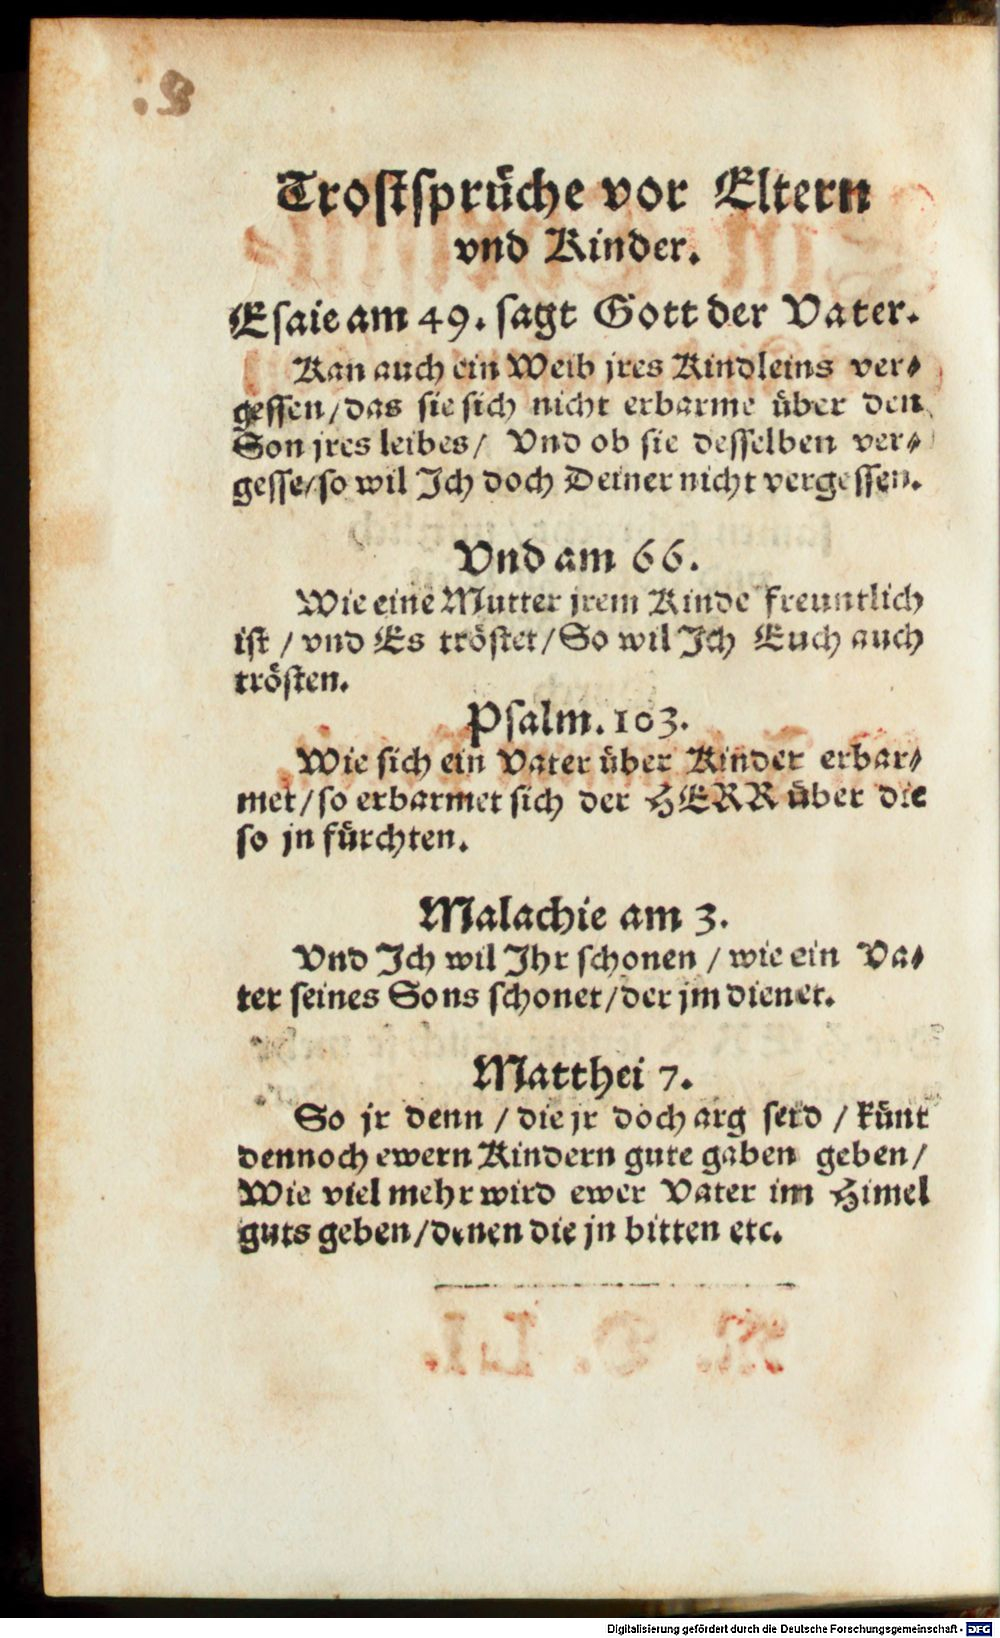 Trostsprüche vor Eltern
vnd Kinder.
Esaie am 49. sagt Gott der Vater.
Kan auch ein Weib jres Kindleins ver⸗
gessen/das sie sich nicht erbarme über den
Son jres leibes/ Vnd ob sie desselben ver⸗
gesse/so wil Ich doch Deiner nicht vergessen.
Vnd am 66.
Wie eine Mutter jrem Kinde freuntlich
ist / vnd Es tröstet/So wil Ich Euch auch
trösten.
Psalm. 103.
Wie sich ein Vater über Kinder erbar⸗
met/so erbarmet sich der HERR über die
so jn fürchten.
Malachie am 3.
Vnd Ich wil Ihr schonen / wie ein Va⸗
ter seines Sons schonet/der jm dienet.
Matthei 7.
So jr denn / die jr doch arg seid / künt
dennoch ewern Kindern gute gaben geben/
Wie viel mehr wird ewer Vater im Himel
guts geben/denen die jn bitten etc.
Digitalisierung gefördert durch die Deutsche Forschungsgemeinschaft - DFG